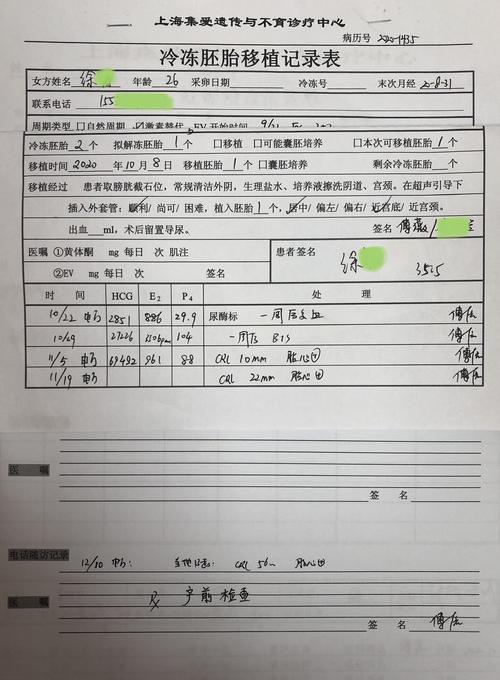 上海集爱遗传与不育诊疗中心
病历号 2020-1435
冷冻胚胎移植记录表
女方姓名 徐 年龄 26 采卵日期 冷冻号 末次月经 20-8-31
联系电话 155
周期类型 □自然周期 ☑激素替代 EV 开始时间 9/
冷冻胚胎 2 个 拟解冻胚胎 1 个 □移植 □可能囊胚培养 □本次可移植胚胎 1 个
移植时间 2020 年 10 月 8 日 移植胚胎 1 个 □囊胚培养 剩余冷冻胚胎 个
移植经过 患者取膀胱截石位，常规清洁外阴，生理盐水、培养液擦洗阴道、宫颈。在超声引导下
插入外套管：顺利/ 尚可/ 困难，植入胚胎 1 个，居中/ 偏左/ 偏右/ 近宫底/ 近宫颈。
出血 ml，术后留置导尿。 签名 傅
医嘱 ①黄体酮 mg 每日 次 肌注
②EV mg 每日 次 签名
患者签名 徐 3525
时 间 HCG E2 P4 处 理
10/22 电 2851 886 29.9 尿酶标 一周后 傅
10/29 27226 104 一周后 B超 傅
11/5 电 69492 961 88 CRL 10mm 胎心⊕ 傅
11/19 电 CRL 22mm 胎心⊕ 傅
医 嘱
签 名
电话随访记录
12/10 电 : CRL 56m 胎心⊕
医 嘱
产前检查
签 名 傅